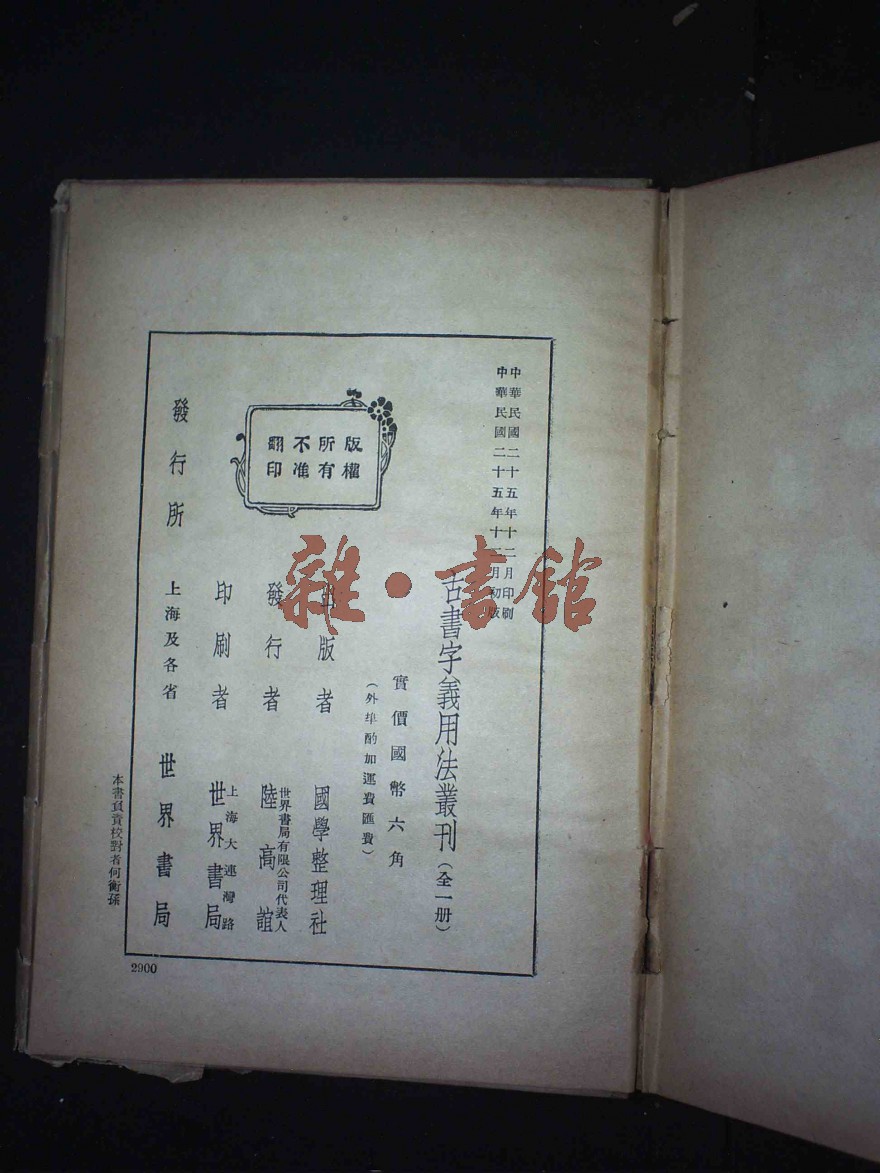 中華民國二十五年十二月印刷
中華民國二十五年十二月初版
古書字義用法叢刊（全一册）
實價國幣六角
（外埠酌加運費匯費）
版權所有
不准翻印
出版者 國學整理社
發行者 世界書局有限公司代表人 陸高誼
印刷者 上海大連灣路 世界書局
發行所 上海及各省 世界書局
本書負責校對者何衡孫
2900
雜·書館